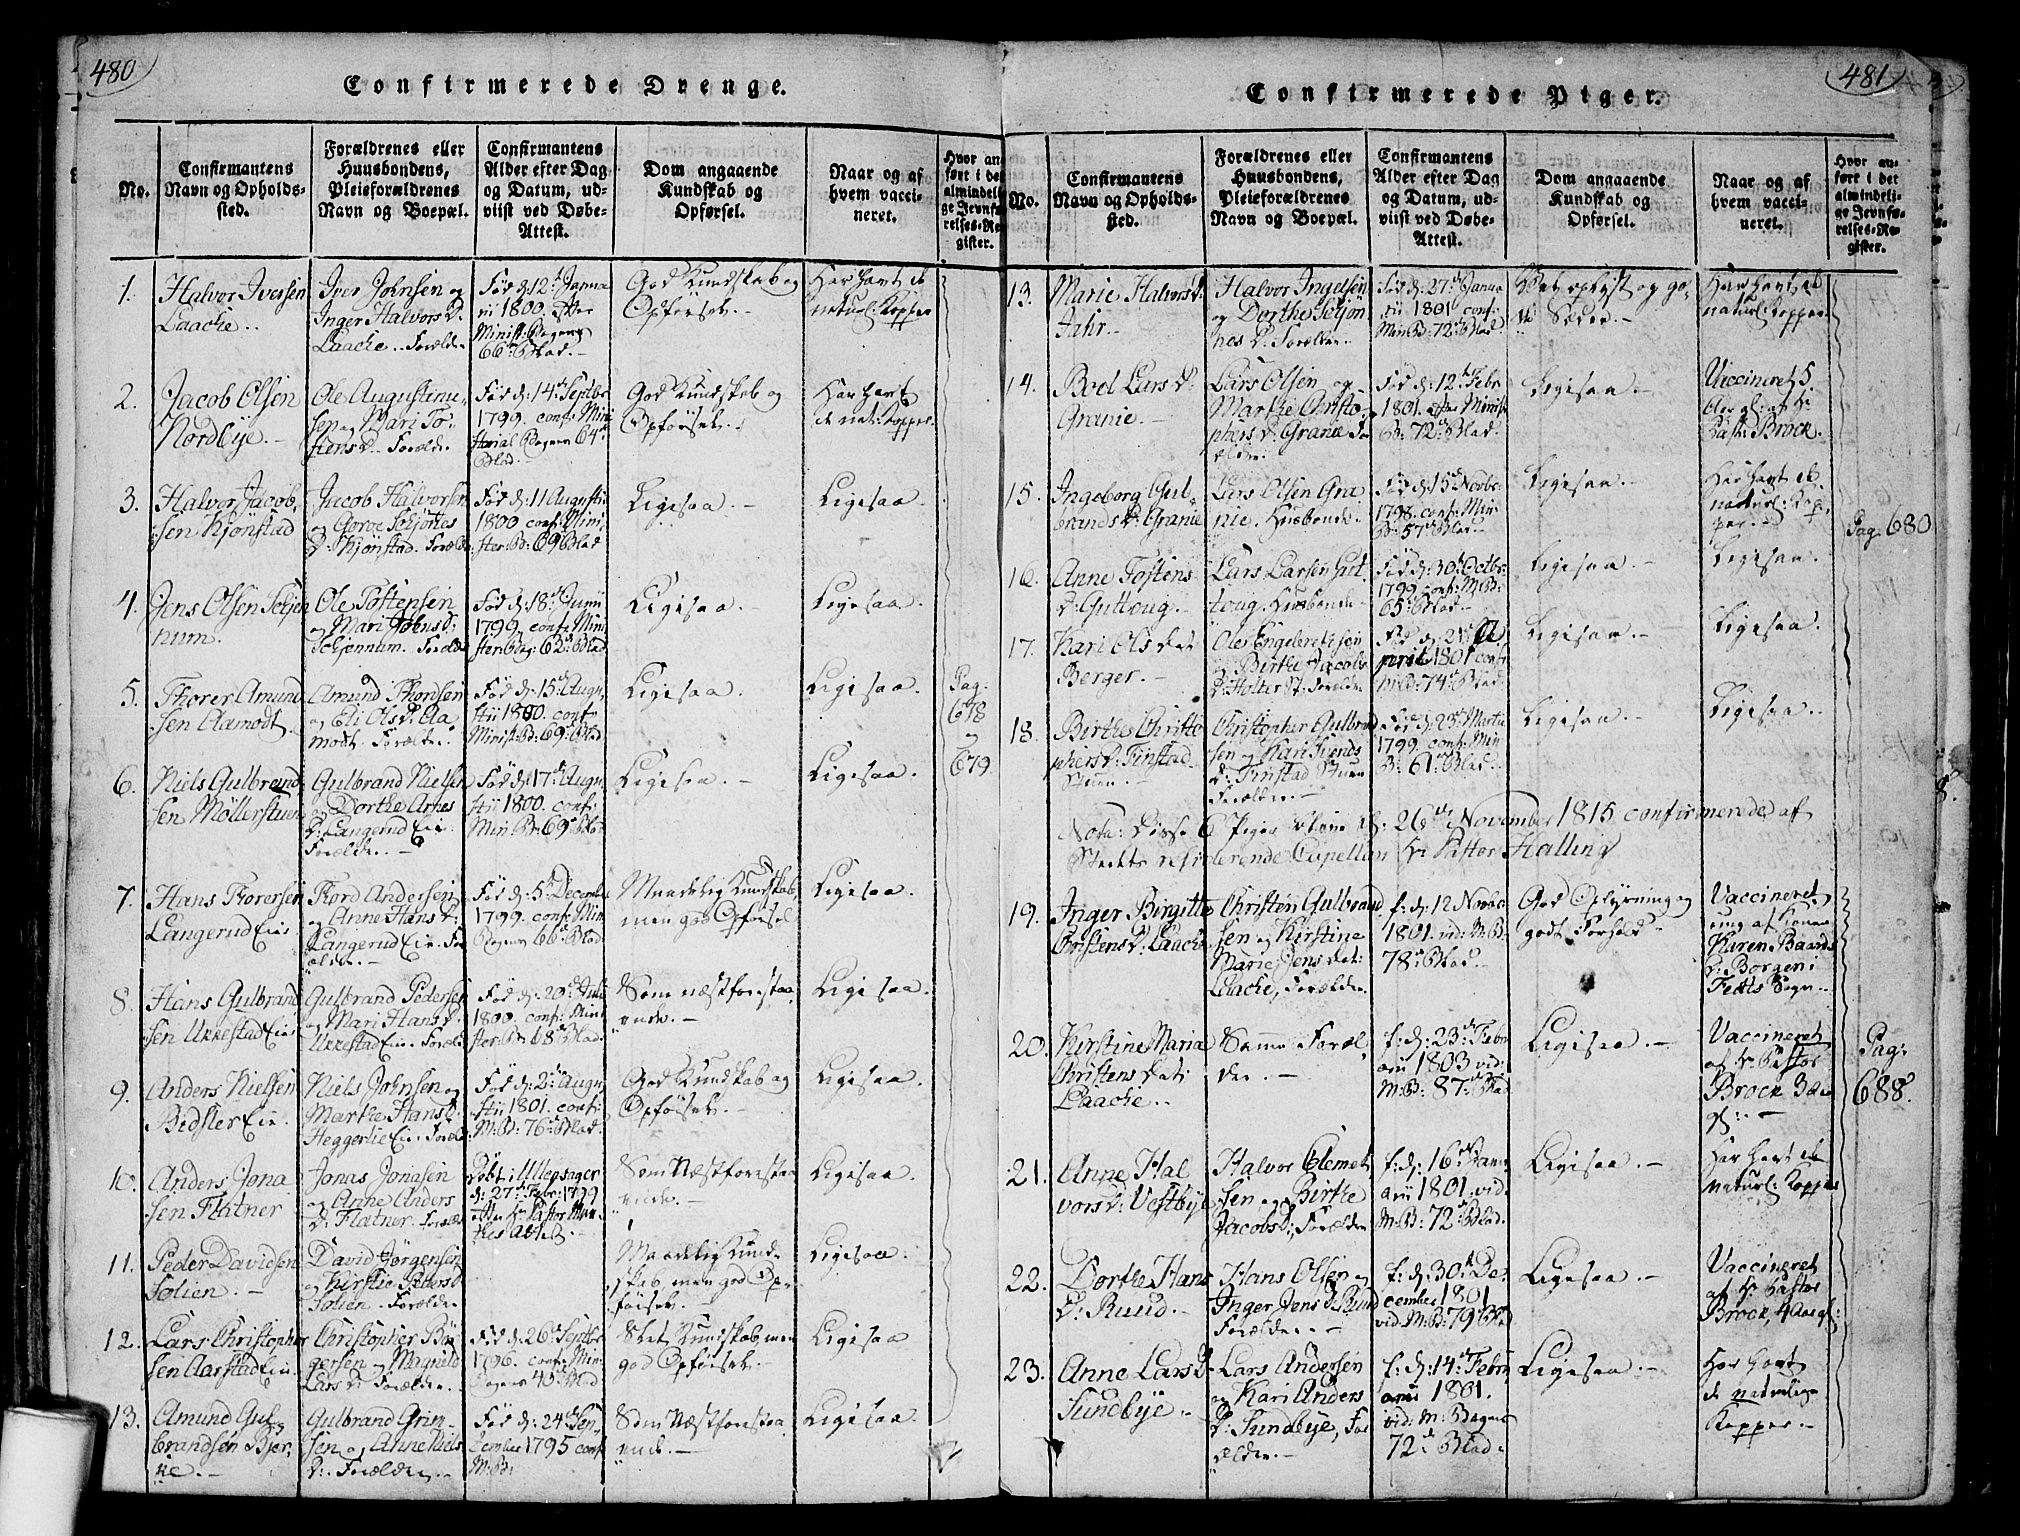 480
Confirmerede Drenge.
No.
Confirmantens
Navn og Opholds-
sted.
Forældrenes eller
Huusbondens,
Pleieforældrenes
Navn og Boepæl.
Confirmantens
Alder efter Dag
og Datum, ud-
viist ved Døbe-
Attest.
Dom angaaende
Kundskab og
Opførsel.
Naar og af
hvem vacci-
neret.
Hvor an-
ført i det
almindeli-
ge Jevnfø-
relses-Re-
gister.
1.
Halvor Iversen
Laache..
Iver Johnsen og
Inger Halvors D.
Laache.. Forælde
Fød d: 12te Janua
rii 1800. efter
Minist: Bogens
66de Blad.-
God Kundskab og
Opførsel.-
Har havt de
naturl: Kopper
2.
Jacob Olsen
Nordbye.-
Ole Augustinu-
sen og Mari To-
stens D. Forælde
Fød d: 14de Septbr
1799. conf: Mini
sterial Bogens 64de
Blad.
God Kundskab og
Opførsel.
Har havt
de nat: Kopper
3.
Halvor Jacob-
sen Kjønstad
Jacob Halvorsen
og Goroe Schjøttes
D: Kjønstad. Forælde
Fød d: 11 Augusti
1800 conf: Mini
ster: B: 69 Blad
Ligesaa.-
Ligesaa.
4.
Jens Olsen Schjen
num.
Ole Tostensen
og Mari Johns D:
Schjennum. Forælde
Fød d: 18de Junii
1799, conf: Mini
ster: Bog: 62de Blad.
Ligesaa.-
Ligesaa.-
5.
Thorer Amund
sen Aamodt.
Amund Thordsen
og Eli Ols D. Aa
modt. Forælde.
Fød d: 15de Augu
stii 1800. conf:
Minist: B: 69: Blad
Ligesaa.
Ligesaa.
Pag.
678
og
679
6.
Niels Gulbrand
sen Möllerstuen
Gulbrand Nielsen
og Dorthe Arnes
D: Langerud Eie.
Forælde..-
Fød d: 17de Augu
stii 1800. conf:
Min B: 69de Blad
Ligesaa.-
Ligesaa.
7.
Hans Thorersen
Langerud Eie.
Thord Andersen
og Anne Hans D:
Langerud Eie. For
ælde.-
Fød d: 5te Decembr
1799. conf: Min:
Bogens 66de Blad.
Maadelig Kundskab,
men god Opførsel
Ligesaa.
8.
Hans Gulbrand
sen Ukkestad Eie
Gulbrand Pedersen
og Mari Hans D.
Ukkestad Eie. Forælde
Fød d: 20de Julii
1800. conf: Mini
ster: B: 68de Blad.
Som næstforestaa
ende.-
Ligesaa.
9.
Anders Nielsen
Bidsler Eie.
Niels Johnsen og
Marthe Hans D:
Heggerlie Eie. Forælde.
Fød d: 2de Augu
stii 1801. conf:
M: B: 76de Blad.
God Kundskab og
Opførsel.-
Ligesaa.
10.
Anders Jona
sen Flatner
Jonas Jonasen
og Anne Anders
D. Flatner. Forælde
Døbt i Ullensager
d: 27de Febr: 1799
efter Hr Pastor Mun
thes Attest.-
Som Næstforestaa
ende.-
Ligesaa.
11.
Peder Davidsen
Solien.-
David Jörgensen
og Kirstie Peders D
Solien. Forælde.
Maadelig Kund-
skab, men god Op-
førsel.
Ligesaa.
12.
Lars Christopher
sen Aarstad Eie.
Christopher Bir
gersen og Magnild
Lars D: Forælde.
Fød d: 26de Septbr
1796. conf: Min:
Bogens 46de Blad
Slet Kundskab, men
god Opførsel.
Ligesaa
13.
Amund Gul
brandsen Bjer
ke.-
Gulbrand Grim-
sen og Anne Niels
D: Forælde.-
Fød d: 24de Sep
tember 1795 conf
M: B:
Som Næstforestaa
ende.-
Ligesaa.
481
Confirmerede Piger.
No.
Confirmantens
Navn og Opholds-
sted.
Forældrenes eller
Huusbondens,
Pleieforældrenes
Navn og Boepæl.
Confirmantens
Alder efter Dag
og Datum, ud-
viist ved Døbe-
Attest.
Dom angaaende
Kundskab og
Opførsel.
Naar og af
hvem vacci-
neret.
Hvor an-
ført i det
almindeli-
ge Jevnfø-
relses-Re-
gister.
13.
Marie Halvors D:
Jahr.
Halvor Ingelsen
og Dorthe Schjön
hos D. Forælder.
Fød d: 27de Janua
rii 1801 conf:
Min B: 72de Blad
Vel oplyst og go-
de Sæder.-
Har havt de
naturl: Kopper.
14.
Boel Lars D.
Granie.-
Lars Olsen og
Marthe Christo
phers D. Granie For
ælder.
Fød d: 12te Febr
1801. efter Minist
B: 72de Blad.
Ligesaa.-
Vaccineret 5
Aar gl: af Hr
Past: Brock.
15.
Ingeborg Gul-
brands D. Granie
Lars Olsen Gra
nie. Husbonde.-
Fød d: 15de Novbr
1798. conf: Min:
B: 57de Blad.
Ligesaa.-
Har havt de
naturl: Kop
per.-
Pag. 680
16.
Anne Tostens
D: Guttoug.-
Lars Larsen Gut
toug. Husbonde.-
Fød d: 30te Octbr:
1799 conf: M: B:
65de Blad.-
Ligesaa.-
Ligesaa.
17.
Kari Ols Dat
Berger.-
Ole Engebretsen
og Birthe Jacobs
D: Holter St: Forælde
Fød d: 21de A
pril 1801 conf:
M: B: 74de Blad.
Ligesaa.-
Ligesaa.
18.
Birthe Christo
phers D: Tinstad
Stuen.-
Christopher Gulbrand
sen og Kari Svends
D: Tinstad Stuen
Forælder.-
Fød d: 23de Martii
1799. conf: Min:
B: 61de Blad.
Ligesaa.-
Ligesaa.
Nota: Disse 6 Piger bleve d: 26de November 1815 confirmerede af
Stedets residerende Capellan Hr Pastor Halling
19.
Inger Birgitte
Christens D: Laache
Christen Gulbrand
sen og Kirstine
Marie Jens Dat:
Laache, Forælder
f: d: 12 Novbr
1801. vid: M: B:
78de Blad.-
God Oplysning og
godt Forhold-
Vaccineret
ung af Kone
Karen Baards
D: Borgen i
Fetts Sogn.-
20.
Kirstine Maria
Christens Dat:
Laache..
Samme Foræl-
der.-
f: d: 23de Febru
arii 1803 vid:
M: B: 87de Blad.
Ligesaa.-
Vaccineret
af Hr Pastor
Brock 3 Aar
gl:.-
Pag:
688.
21.
Anne Hal
vors D: Vestbye
Halvor Clemet
sen og Birthe
Jacobs D: Forælder
f: d: 16de Janu
arii 1801. vid.
M: B: 72de Blad.
Ligesaa.-
Har havt de
naturl: Kopper
22.
Dorthe Hans
D: Ruud.-
Hans Olsen og
Inger Jens D: Ruud
Forælder.-
f: d: 30te De
cember 1801
vid: M: B: 79de Blad
Ligesaa.-
Vaccineret
af Hr Pastor
Brock, 4 Aar gl:
23.
Anne Lars D
Sundbye.-
Lars Andersen
og Kari Anders
D: Sundbye, For
ælder.-
f: d: 14de Febru
arii 1801.
vid: M: Bogens
72de Blad.
Ligesaa.-
Har havt
de naturlige
Kopper.-